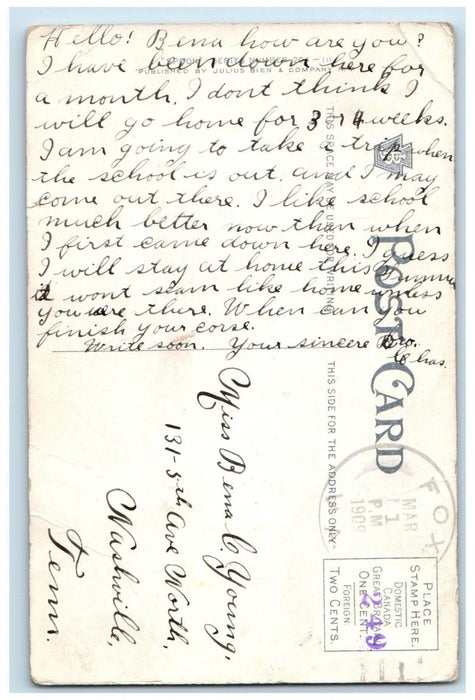 Hello! Bena how are you?
I have been down here for
a month. I dont think I
will go home for 3 r 4 weeks.
I am going to take a trip when
the school is out. and I may
come out there. I like school
much better now then when
I first came down here. I guess
I will stay at home this summer
it wont seam like home unless
you were there. When can you
finish your corse.
Write soon. Your sincere Bro.
Chas.
PUBLISHED BY JULIUS BIEN & COMPANY
THIS SPACE MAY BE USED FOR WRITING
POST CARD
THIS SIDE FOR THE ADDRESS ONLY.
Miss Bena C. Young,
131-5th Ave North,
Nashville,
Tenn.
FOX
MAR
11
P.M
1909
PLACE
STAMP HERE.
DOMESTIC
CANADA
GREAT BRITAIN
ONE CENT.
FOREIGN:
TWO CENTS.
249